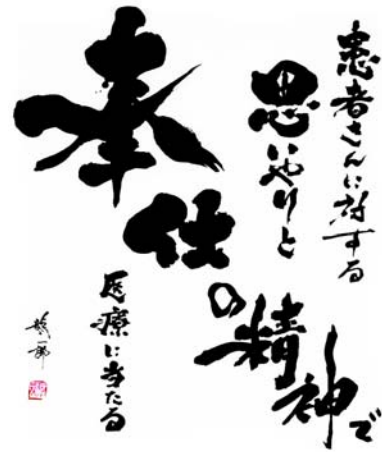 患者さんに対する
思いやりと
奉仕
の精神で
医療に当たる